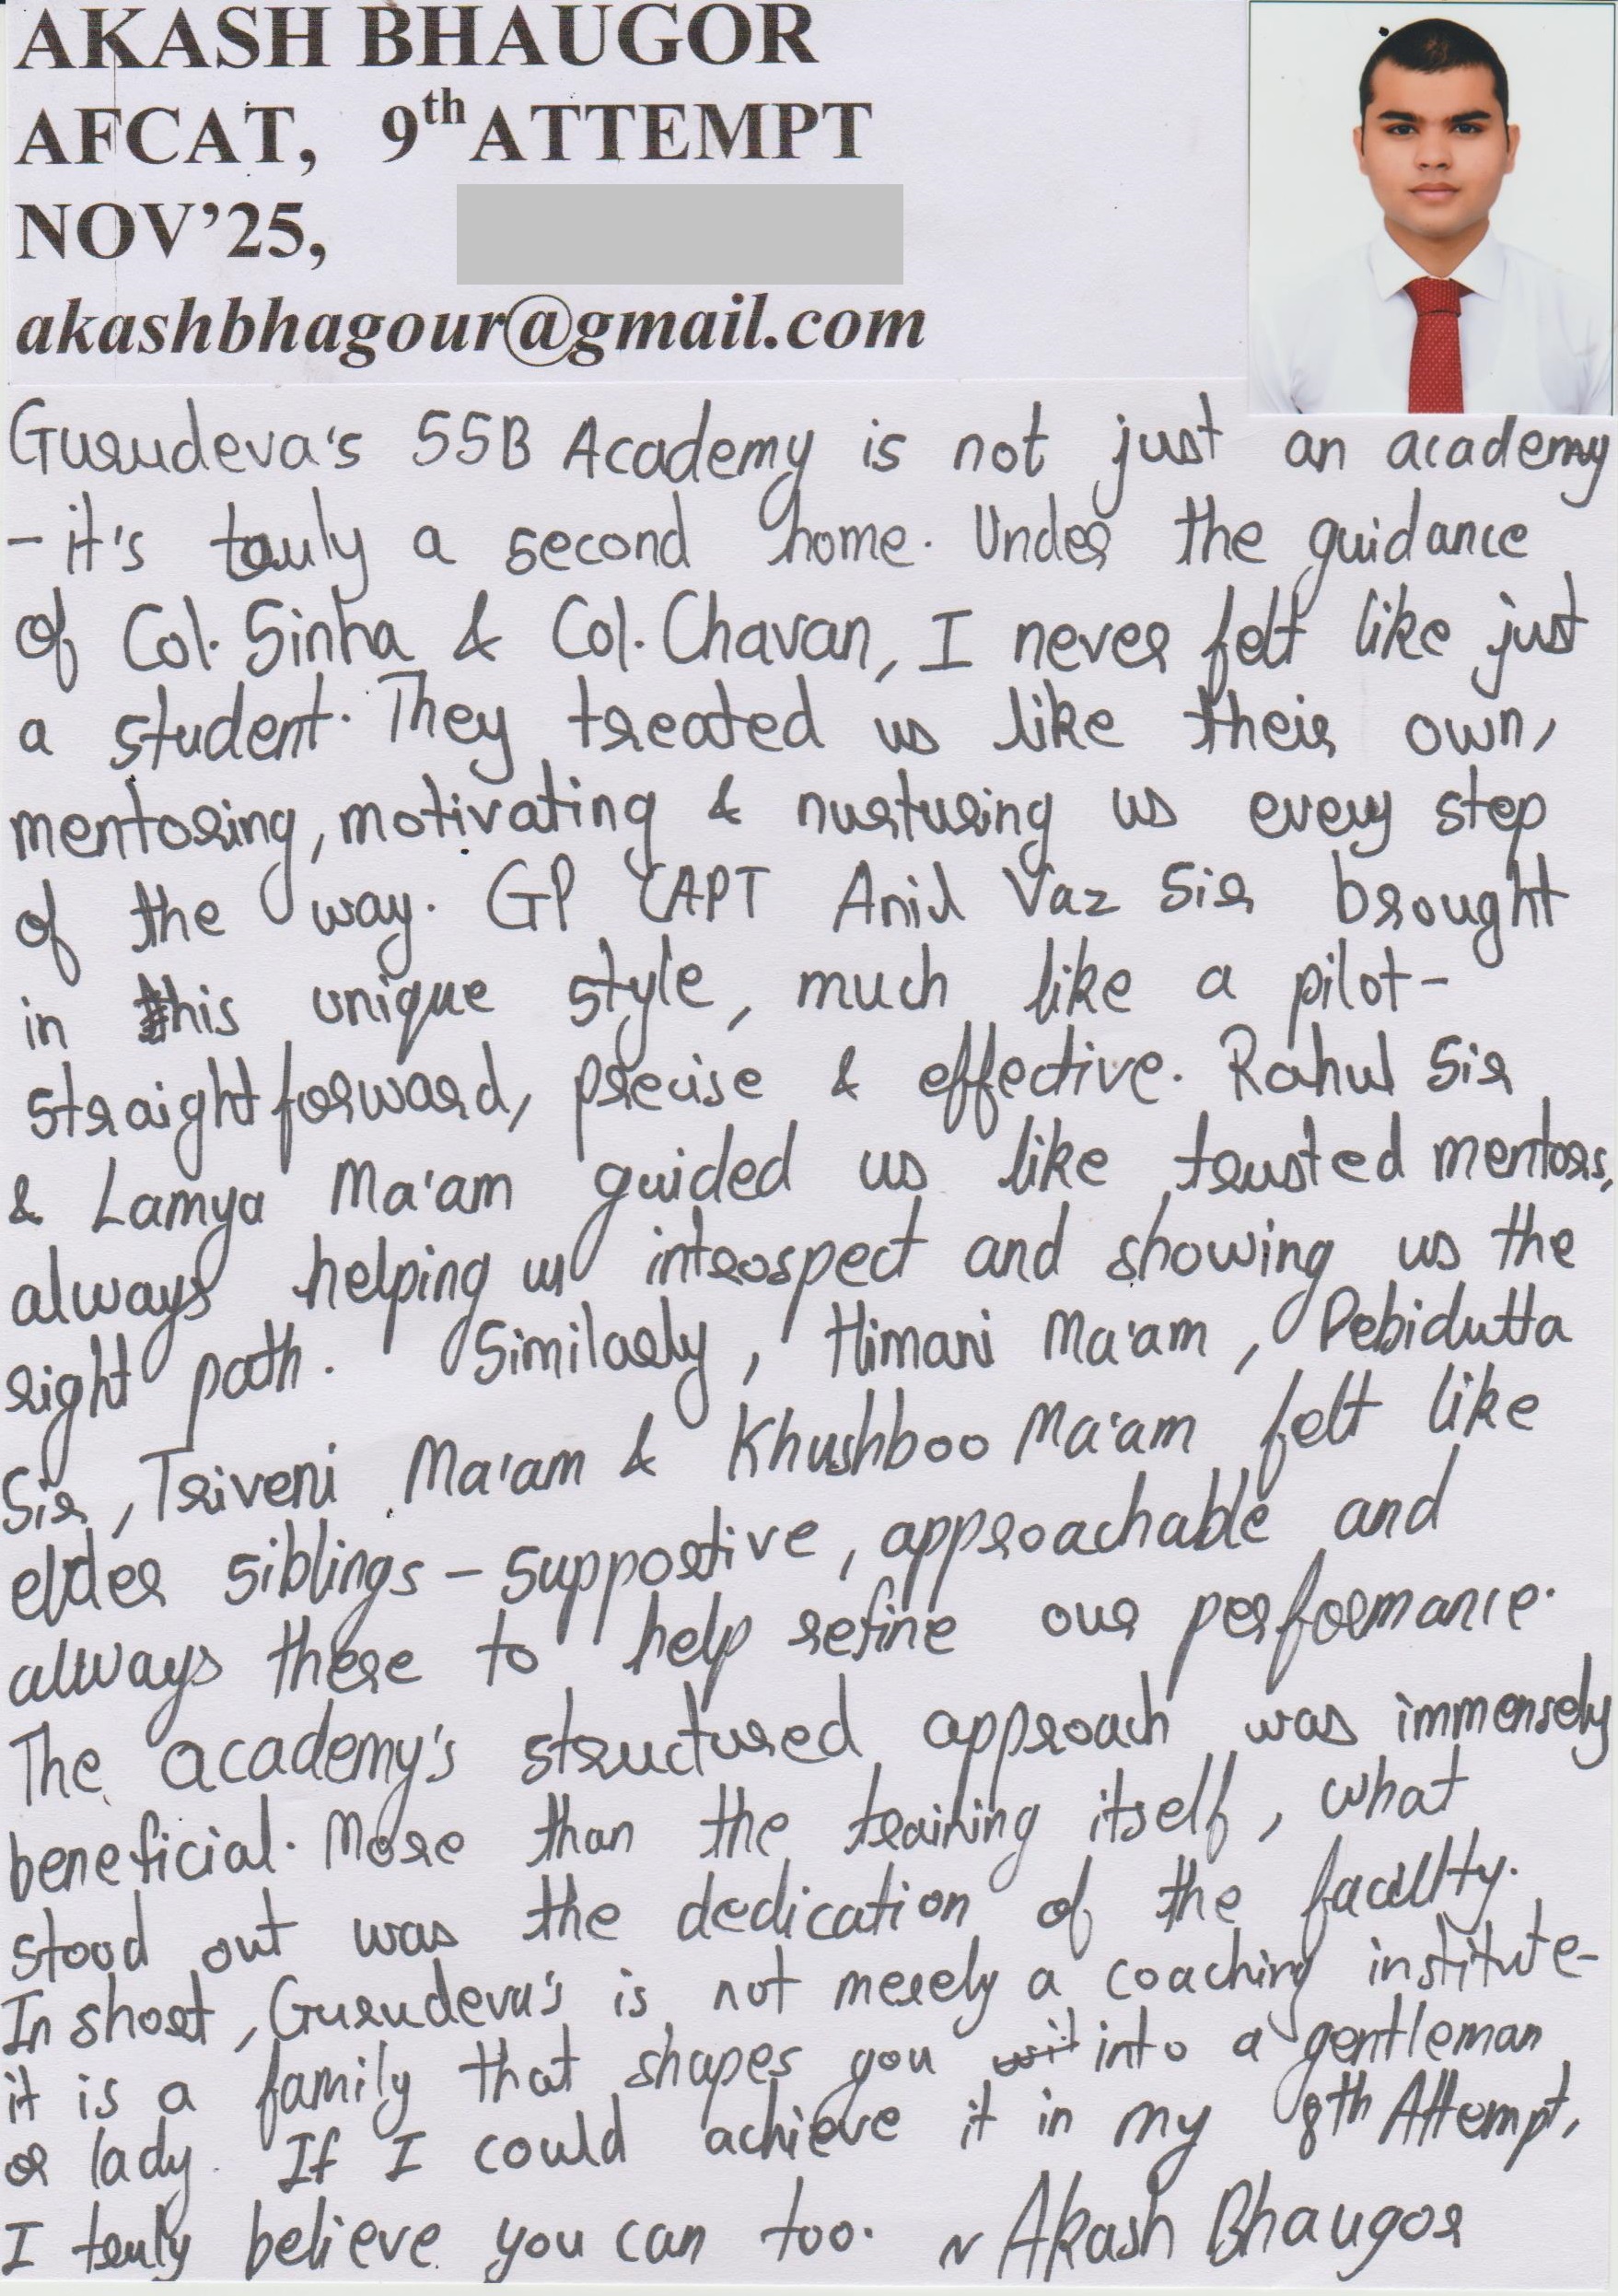 AKASH BHAUGOR
AFCAT, 9th ATTEMPT
NOV'25,
akashbhagour@gmail.com
Gurudeva's SSB Academy is not just an academy
- it's truly a second home. Under the guidance
of Col. Sinha & Col. Chavan, I never felt like just
a student. They treated us like their own,
mentoring, motivating & nurturing us every step
of the way. GP CAPT Anil Vaz Sir brought
in this unique style, much like a pilot-
straightforward, precise & effective. Rahul Sir
& Lamya Ma'am guided us like trusted mentors,
always helping us introspect and showing us the
right path. Similarly, Himani Ma'am, Debidutta
Sir, Triveni Ma'am & Khushboo Ma'am felt like
elder siblings - supportive, approachable and
always there to help refine our performance.
The academy's structured approach was immensely
beneficial. More than the training itself, what
stood out was the dedication of the faculty.
In short, Gurudeva's is not merely a coaching institute-
it is a family that shapes you into a gentleman
or lady. If I could achieve it in my 8th Attempt,
I truly believe you can too. ~ Akash Bhaugor